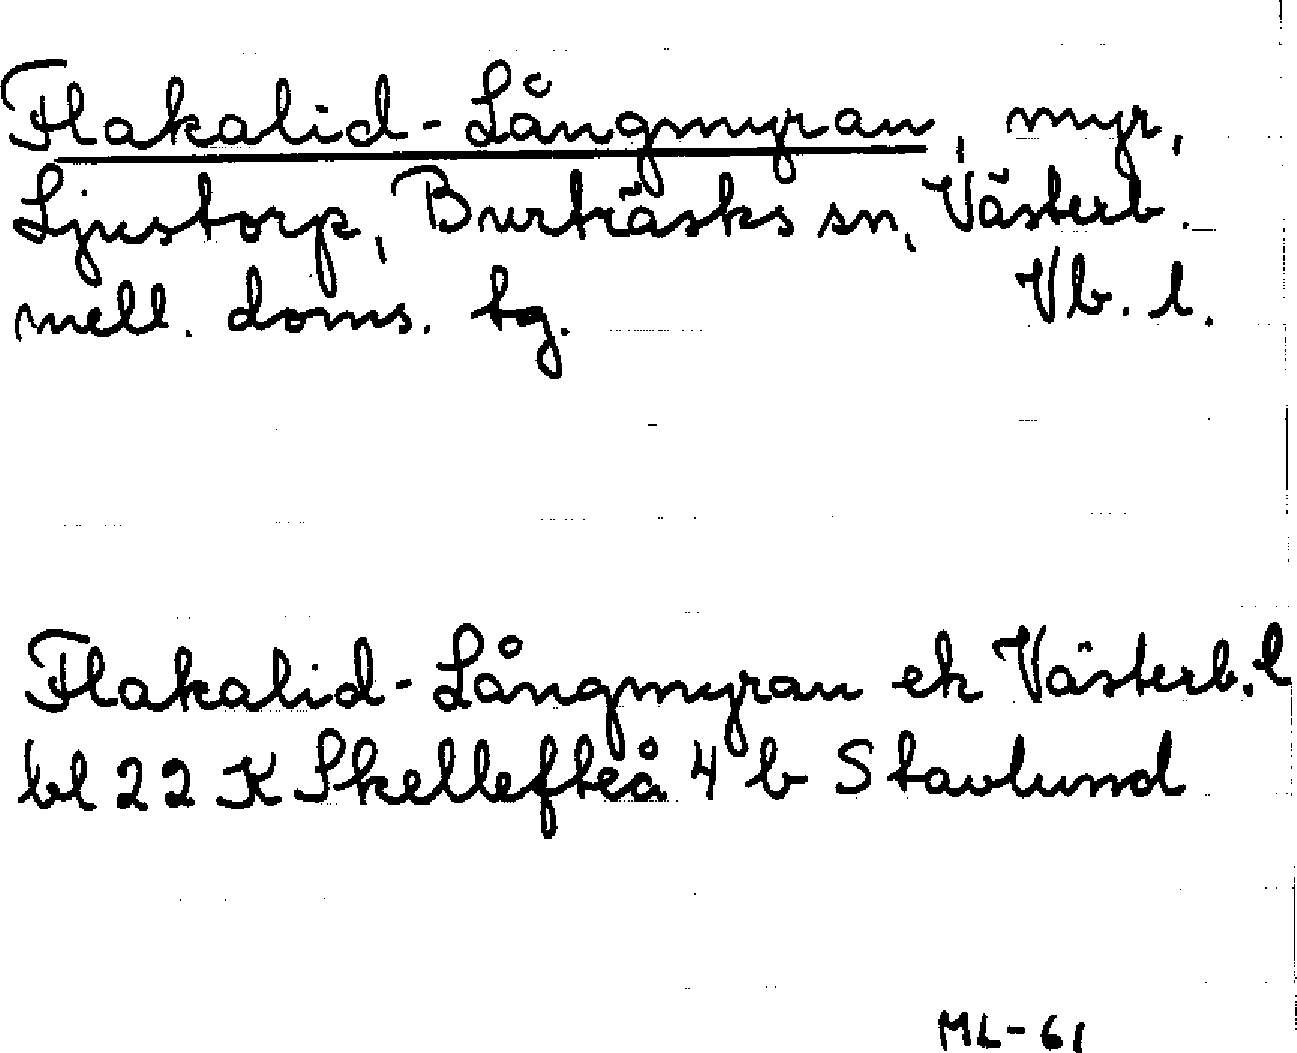 Flakalid-Långmyran, myr,
Ljustorp, Burträsks sn, Västerb.
mell. doms. tg. Vb. l.
Flakalid-Långmyran ek Västerb. l
bl 22 K Skellefteå 4 b Stavlund
ML-61